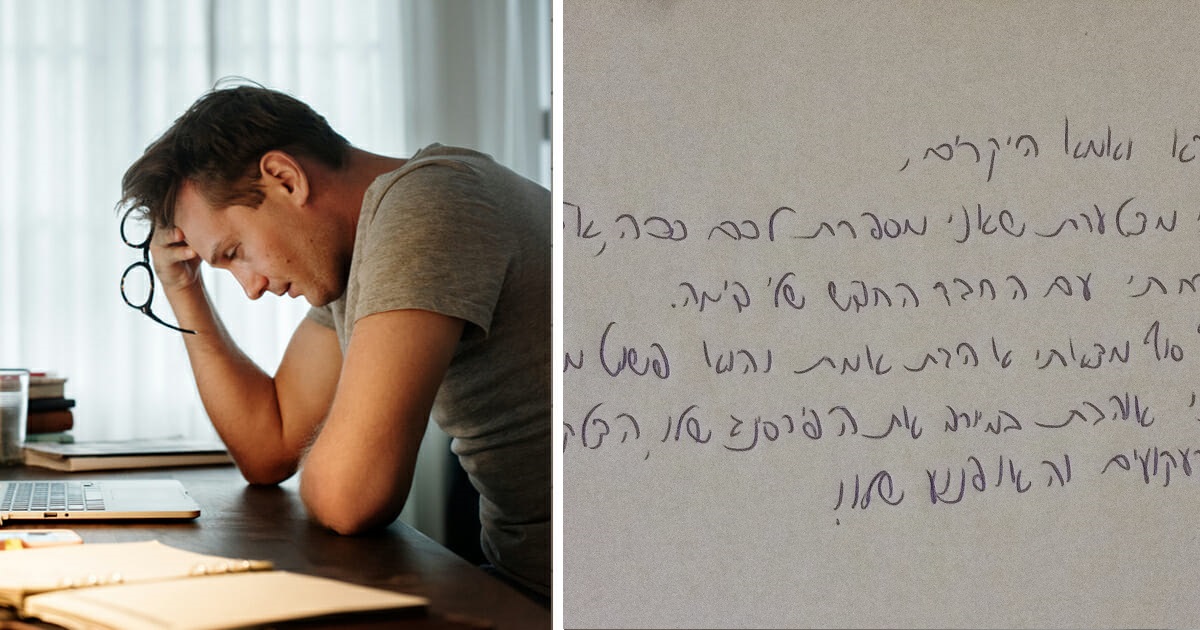 ואמא היקרים,
מצטערת שאני מספרת לכם ככה,
עם החבר החדש שלי קימה.
סוף מצאתי אהבת אמת והוא פשוט
אוהבת במיוחד את הפירסינג שלו,
והאופנוע שלו!